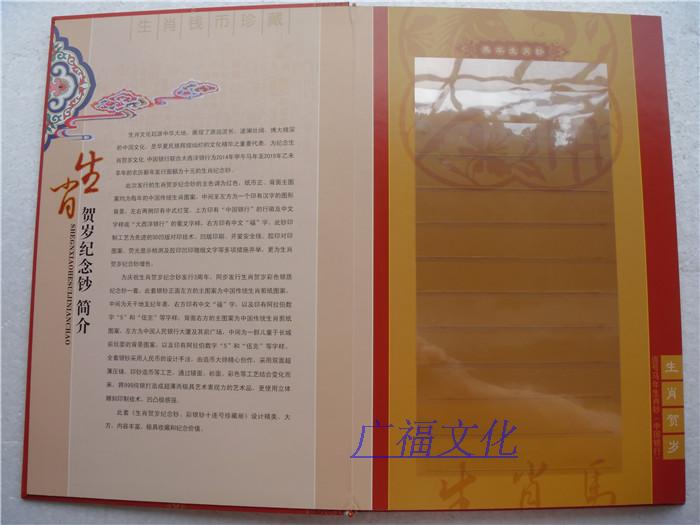 生肖钱币珍藏
生肖
贺岁纪念钞 简介
SHEGNXIAOHESUIJINIANCHAO
生肖文化起源中华大地，展现了源远流长、波澜壮阔、博大精深
的中国文化，是华夏民族辉煌灿烂的文化精华之重要代表。为纪念生
肖贺岁文化，中国银行联合大西洋银行为2014年甲午马年至2015年乙未
羊年的农历新年发行面额为十元的生肖纪念钞。
此次发行的生肖贺岁纪念钞的主色调为红色，纸币正、背面主图
案均为每年的中国传统生肖图案，中间至左方为一个印有汉字的图形
背景，左右两侧印有中式灯笼，上方印有“中国银行”的行政及中文
字样或“大西洋银行”的葡文字样，右方印有中文“福”字，此钞印
制工艺为先进的
为庆祝生肖贺岁纪念钞发行3周年，同步发行生肖贺岁彩色银质
纪念钞一套，此套银钞正面左方的主图案为中国传统生肖剪纸图案，
中间为天干地支纪年表，右方印有中文“福”字，以及印有阿拉伯数
字“5”和“伍克”等字样，背面右方的主图案为中国传统生肖剪纸
图案，左方为中国人民银行大厦及其前广场，中间为一群儿童于长城
前玩耍的背景图案，以及印有阿拉伯数字“5”和“伍克”等字样。
全套银钞采用人民币的设计手法，由造币大师精心创作，采用双面超
薄压铸、印钞造币等工艺，通过镜面、砂面、彩色等工艺结合变化而来，
将999纯银打造成超薄而极具艺术表现力的艺术品，更使用立体
雕刻印制技术，凹凸极感强。
此套《生肖贺岁纪念钞、彩银钞十连号珍藏册》设计精美、大
方，内容丰富，极具收藏和纪念价值。
马年生肖钞
生肖贺岁
连号马年生肖钞（中国银行）
生肖馬
广福文化